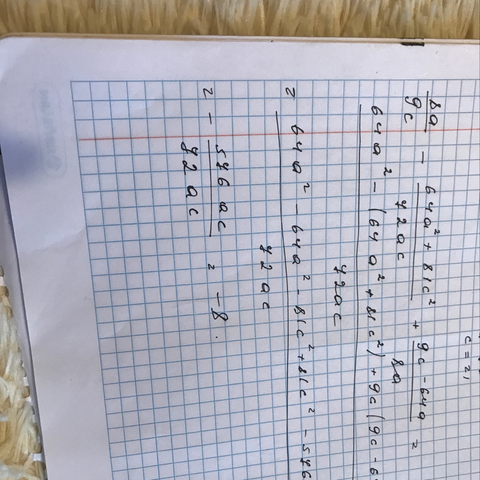 c = 21
8a/9c − (64a² + 81c²)/72ac + (9c − 64a)/8a =
64a² − (64a² + 81c²) + 9c(9c − 6
72ac
= 64a² − 64a² − 81c² + 81c² − 576
72ac
= − 576ac/72ac = −8.